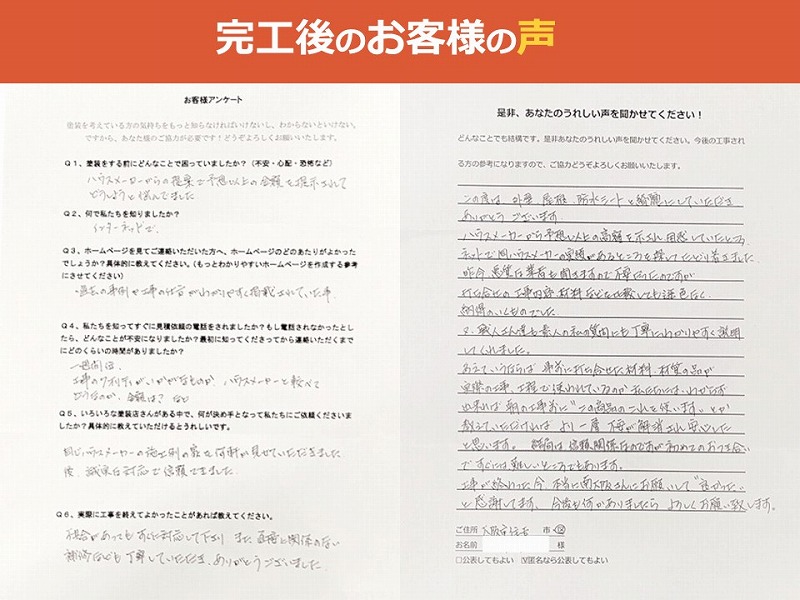 完工後のお客様の声
お客様アンケート
塗装を考えている方の気持ちをもっと知らなければいけないし、わからないといけない。
ですから、あなた様のご協力が必要です！どうぞよろしくお願いいたします。
Q１、塗装をする前にどんなことで困っていましたか？（不安・心配・恐怖など）
ハウスメーカーからの提案で予想以上の金額を提示されて
どうしようと悩んでました
Q２、何で私たちを知りましたか？
インターネットで、
Q３、ホームページを見てご連絡いただいた方へ、ホームページのどのあたりがよかった
でしょうか？具体的に教えてください。（もっとわかりやすいホームページを作成する参考
にさせてください）
過去の事例や工事の仕方がわかりやすく掲載されていた事。
Q４、私たちを知ってすぐに見積依頼の電話をされましたか？もし電話されなかったとし
たら、どんなことが不安になりましたか？最初に知ってくださってから連絡いただくまで
にどのくらいの時間がありましたか？
一週間位、
工事のクオリティがいかがなものか、ハウスメーカーと較べて
どうなのか、金額は？など
Q５、いろいろな塗装店さんがある中で、何が決め手となって私たちにご依頼くださいま
したか？具体的に教えていただけるとうれしいです。
同じハウスメーカーの施工例の家を何軒か見せていただきました
後、誠実な対応で信頼できました。
Q６、実際に工事を終えてよかったことがあれば教えてください。
不具合があってもすぐに対応して下さり また 直接に関係のない
補修なども丁寧していただき、ありがとうございました。
是非、あなたのうれしい声を聞かせてください！
どんなことでも結構です。是非あなたのうれしい声を聞かせてください。今後の工事され
る方の参考になりますので、ご協力どうぞよろしくお願いいたします。
この度は、外壁、屋根、防水シートと綺麗にしていただき
ありがとうございます。
ハウスメーカーから予想以上の高額を示され困惑していたところ
ネットで同ハウスメーカーの実績があるところを探してたどり着きました。
昨今悪質な業者も聞きますので不安だったのですが
打ち合せの工事内容、材料などを比較しても遜色なく
納得のいくものでした
又、職人さん達も素人の私の質問にも丁寧にわかりやすく説明
してくれました。
あえていうならば 事前に打ち合せた材料、材質の品が
実際の工事、工程で使われているのか私たちにはわからず
出来れば 朝の工事前に"この商品のこれを使います。とか
教えていただければ より一層 不安が解消され安心した
と思います。 結局は信頼関係なのですが初めてのおつき合い
ですぐには難しいところでもあります。
工事が終わった今、本当に南大阪さんにお願いして"良かった"
と感謝してます、今後も何かありましたら よろしくお願い致します。
ご住所 大阪府 市・
お名前 様
□公表してもよい ☑匿名なら公表してもよい